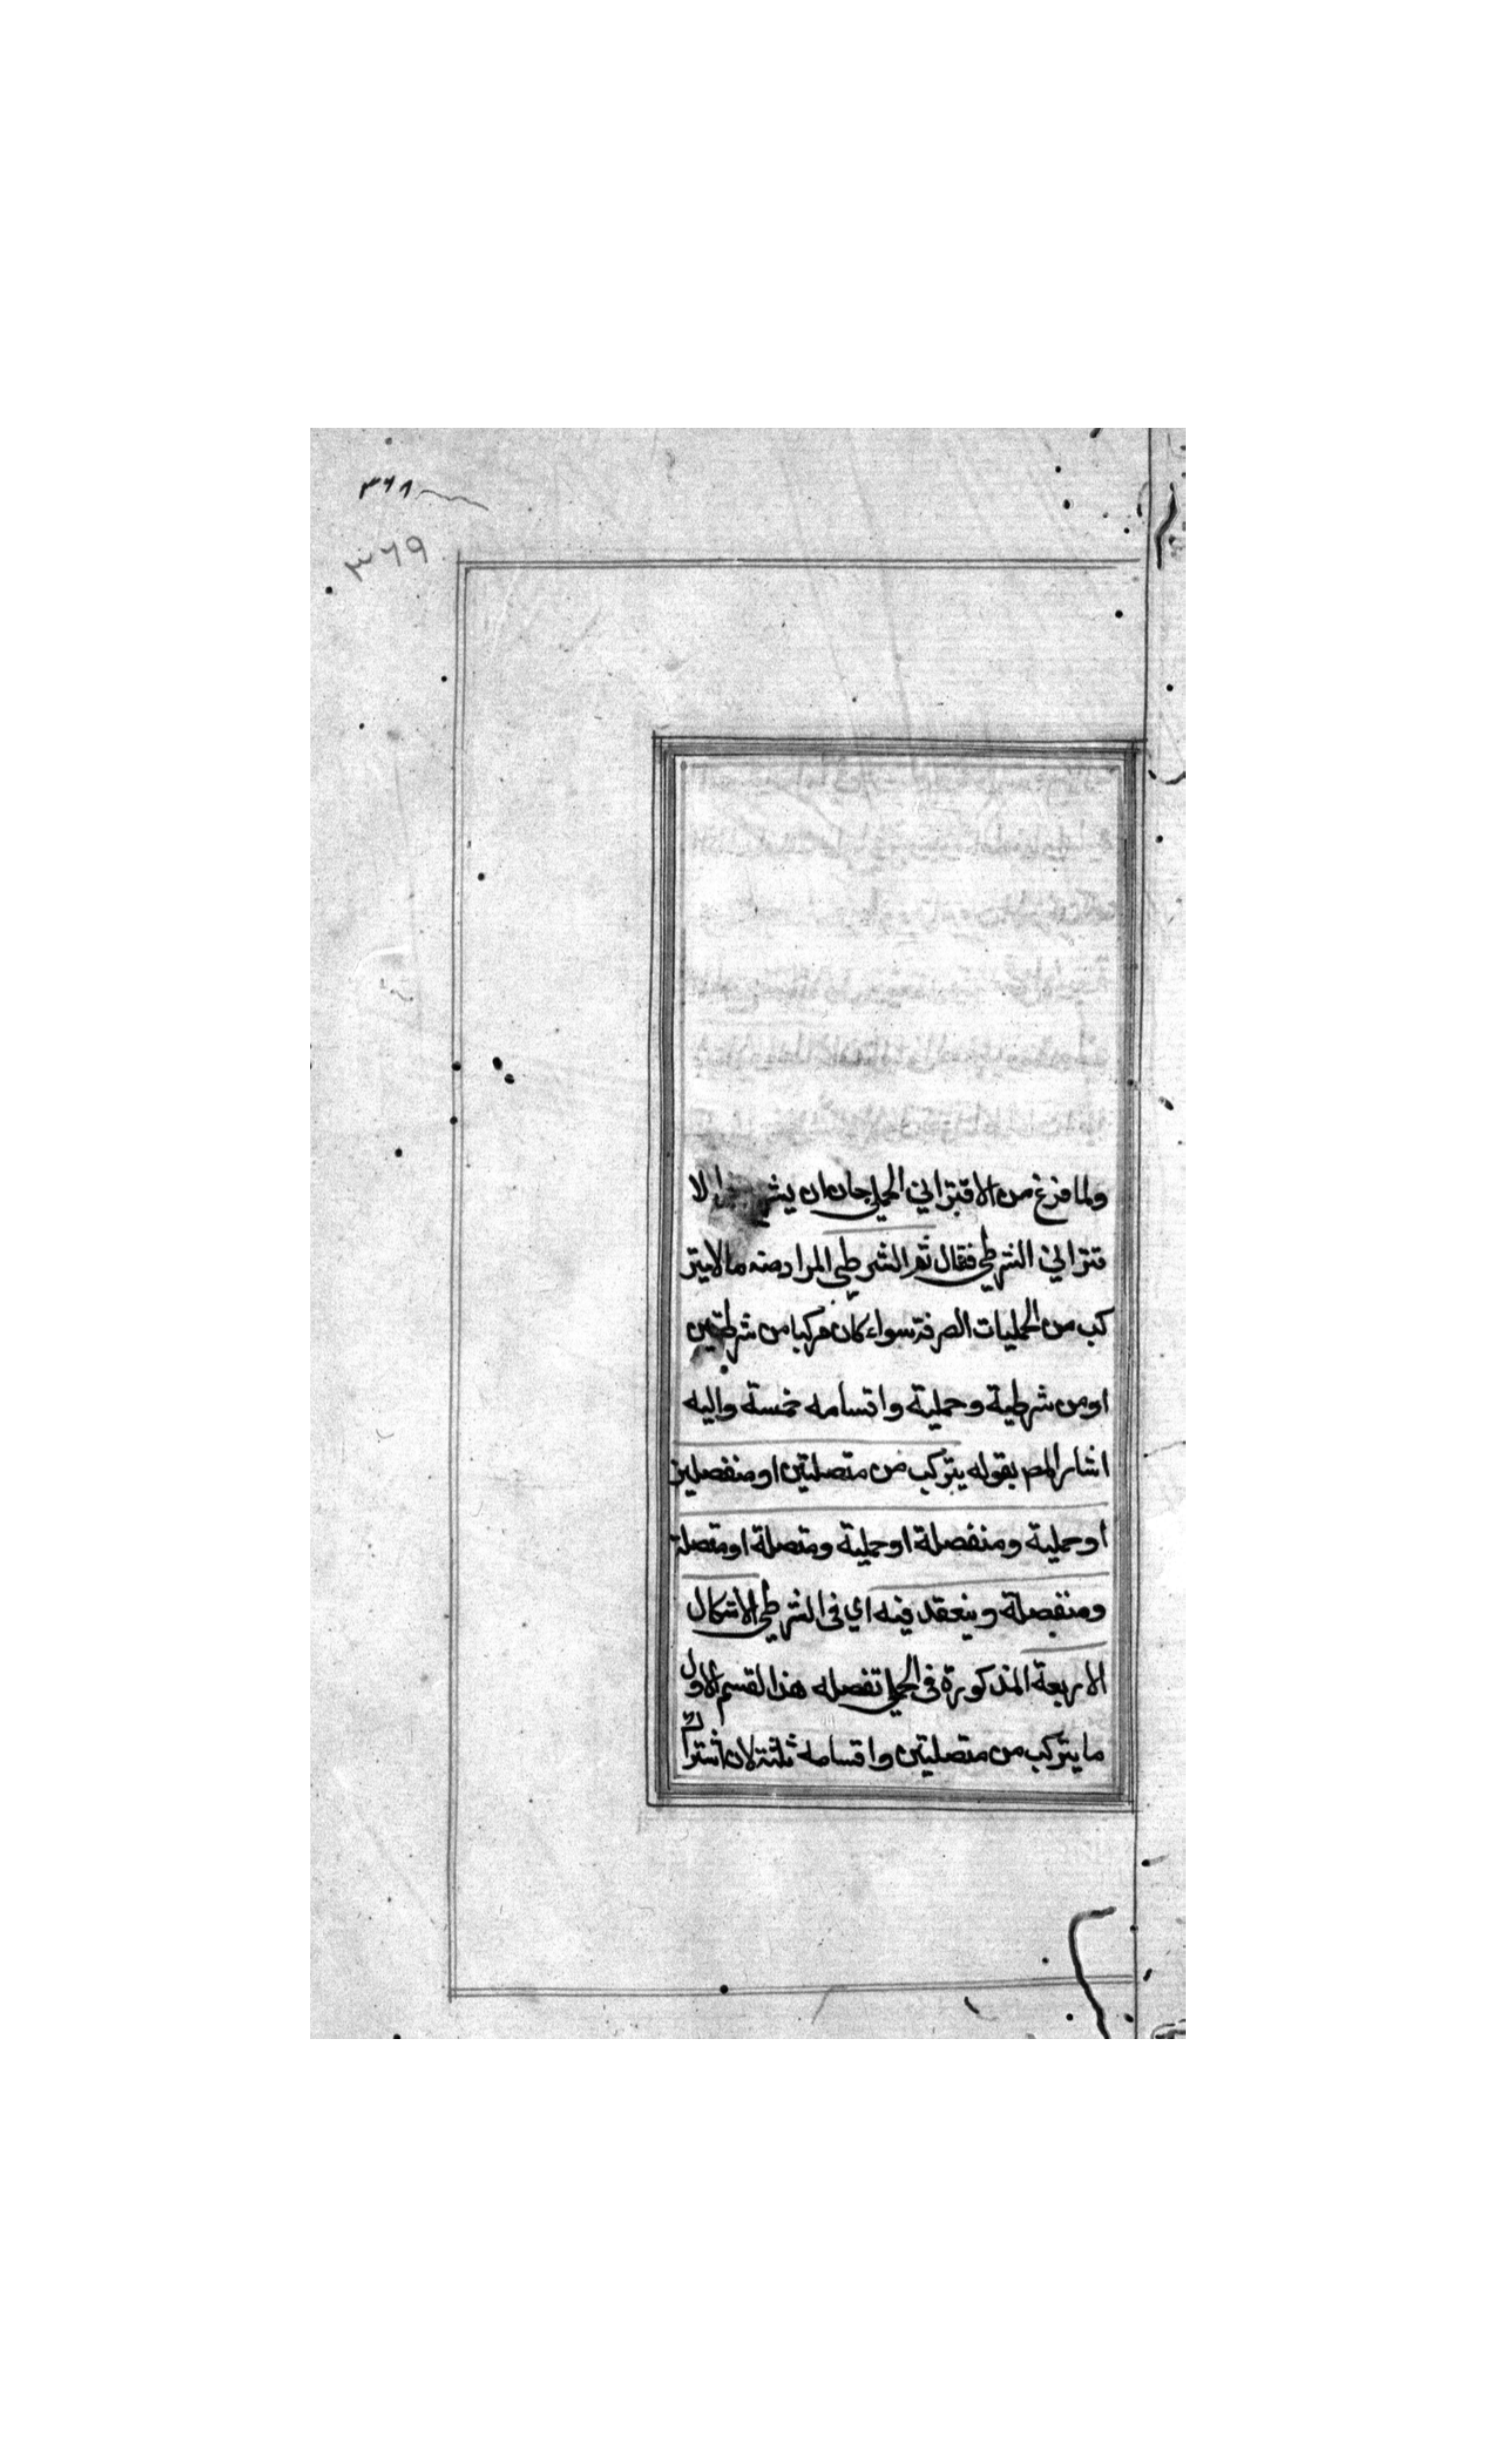 ٣٦٨
٣٦٩
ولما فرغ من الاقتراني الحملي حان ان لا
قتراني الشرطي فقال ثم الشرطي المراد منه ما لا يتر
كب من الحمليات الصرفة سواء كان مركبا من شرطيتين
او من شرطية وحملية واقسامه خمسة واليه
اشار المص بقوله يتركب من متصلتين او منفصلين
او حملية ومنفصلة او حملية ومتصلة او متصلة
ومنفصلة وينعقد فيه اي في الشرطي الاشكال
الاربعة المذكورة في الحملي تفصله هذا القسم الاول
ما يتركب من متصلتين واقسامه ثلثة لان اشتراك